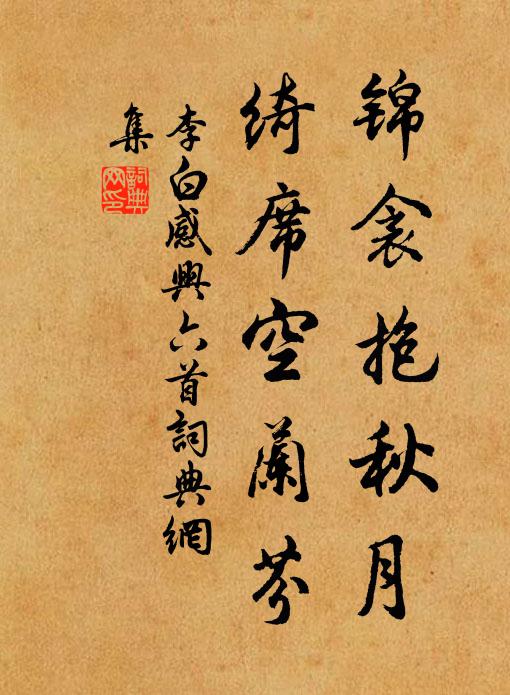 锦衾抱秋月
绮席空兰芬
李白感興六首詞典網
集
詞典
网印